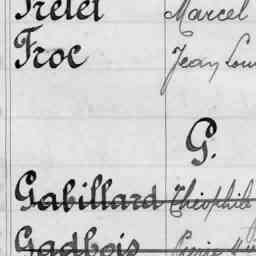 Trelet Marcel
Froc Jean Lou
G.
Gabillard Théophile
Gadbois